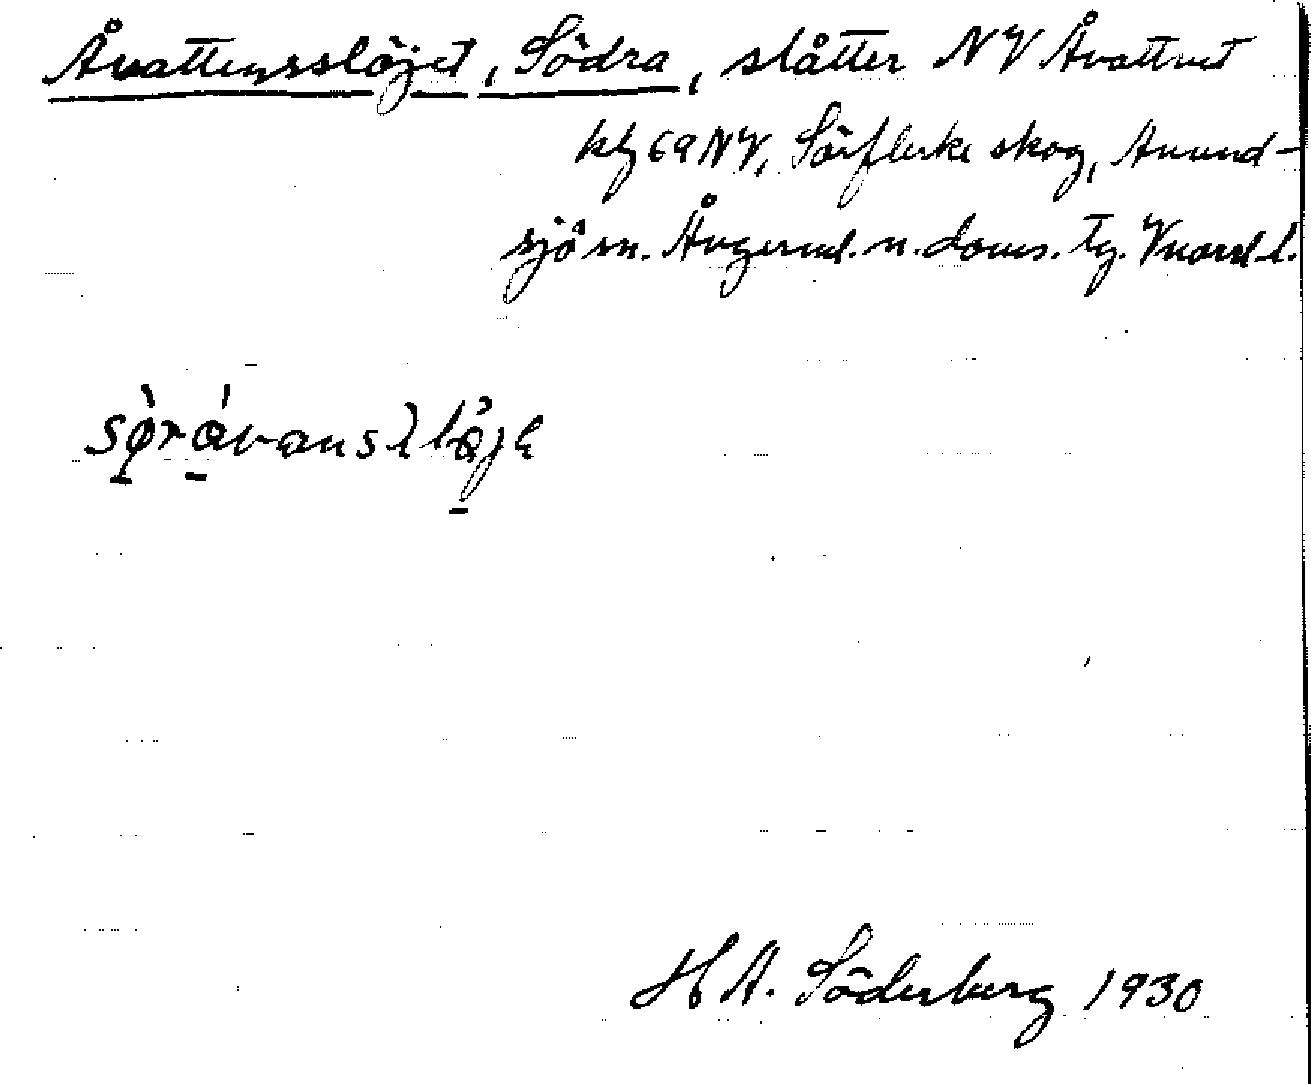 Åvattensslöjet, Södra, slåtter NV Åvattnet
kbl 69 NV, Sörflärke skog, Anund-
sjö sn. Ångerml. n. doms. tg. Vnorrl. l.
H A. Söderberg 1930